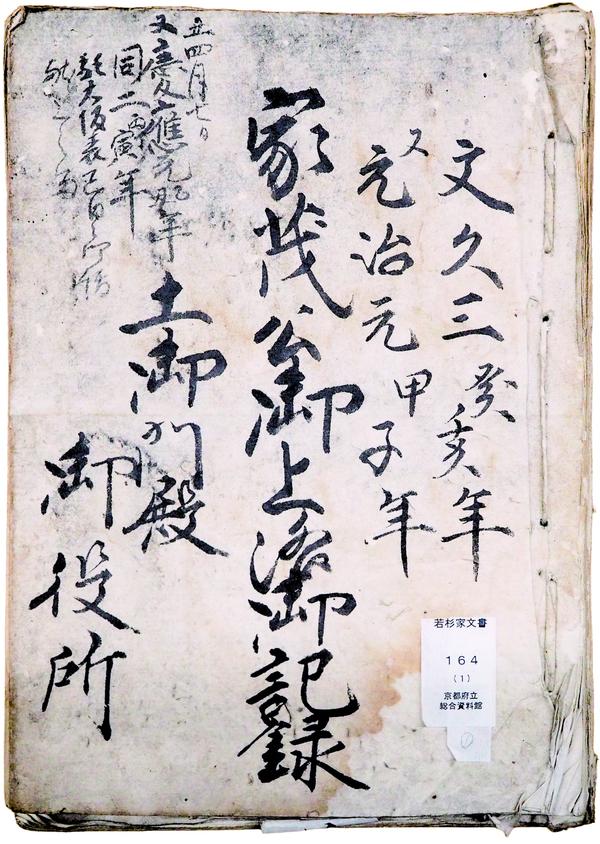 文久三癸亥年
又元治元甲子年
家茂公御上洛御記録
土御門殿
御役所
五四月七日
又慶應元乙丑年
同二丙寅年
若杉家文書
164
(1)
京都府立
総合資料館